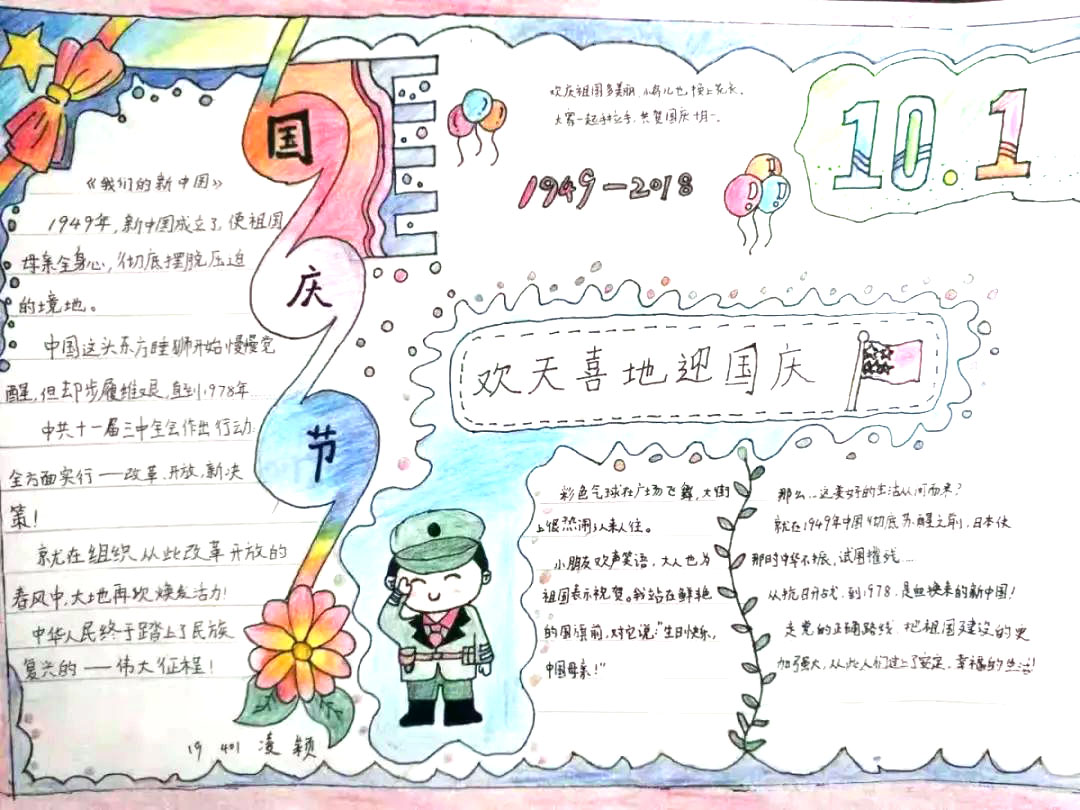 国
庆
节
《我们的新中国》
1949年，新中国成立了，使祖国
母亲全身心，彻底摆脱压迫
的境地。
中国这头东方睡狮开始慢慢觉
醒，但却步履维艰，直到1978年
中共十一届三中全会作出行动：
全方面实行——改革、开放，新决
策！
就在组织从此改革开放的
春风中，大地再次焕发活力！
中华人民终于踏上了民族
复兴的——伟大征程！
19 401 凌颖
欢庆祖国多美丽，小鸟儿也换上花衣。
大家一起手拉手，共贺国庆十月一。
1949—2018
10.1
欢天喜地迎国庆
彩色气球在广场飞舞，大街
上很热闹，人来人往。
小朋友欢声笑语，大人也为
祖国表示祝贺。我站在鲜艳
的国旗前，对它说："生日快乐，
中国母亲！"
那么...这美好的生活从何而来？
就在1949年中国彻底苏醒之前，日本伏
那时中华不振，试图摧残...
从抗日开战，到1978，是血换来的新中国！
走党的正确路线，把祖国建设的更
加强大，从此人们过上了安定、幸福的生活！